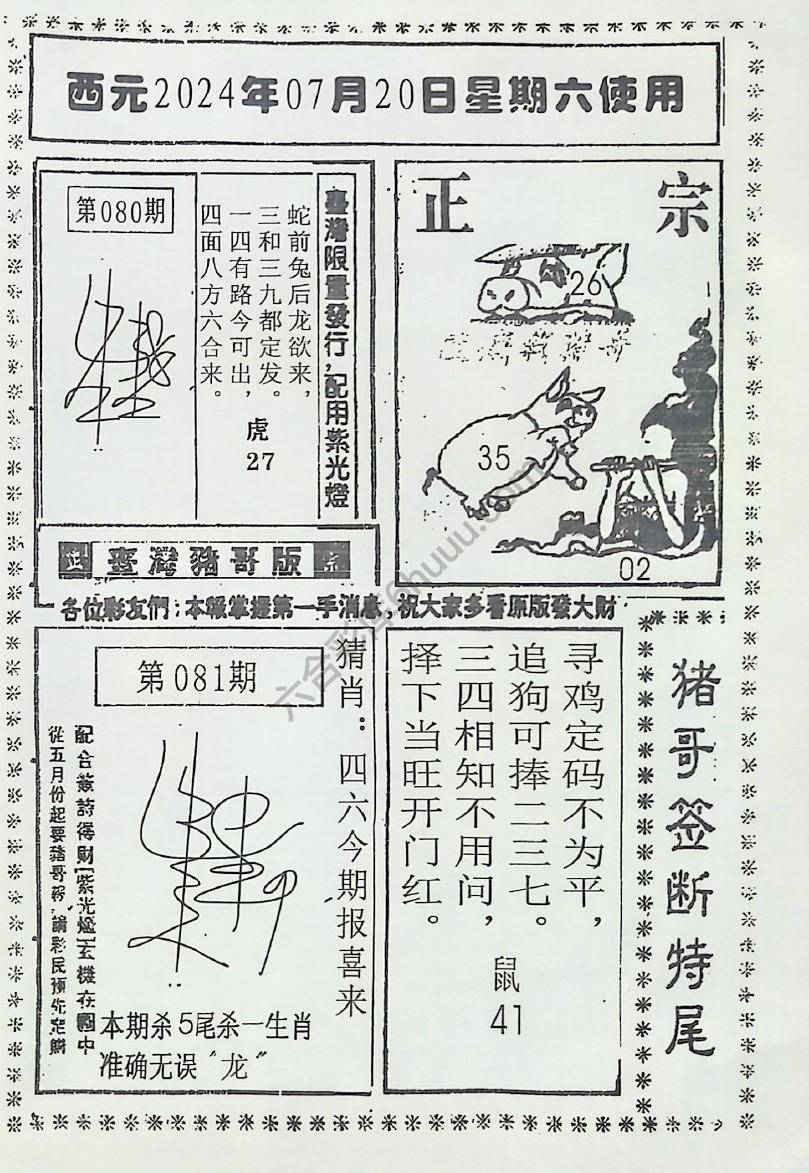 西元2024年07月20日星期六使用
第080期
臺灣限量發行，配用紫光燈
蛇前兔后龙欲来，
三和三九都定发。
一四有路今可出，
四面八方六合来。
虎
27
正宗
26
35
02
正 臺灣豬哥版 宗
各位彩友們：本報掌握第一手消息，祝大家多看原版發大財
第081期
猜肖：四六今期报喜来
配合簽詩得財
紫光燈
玄機在圖中
從五月份起要豬哥報，請彩民預先定購
本期杀5尾杀一生肖
准确无误“龙”
寻鸡定码不为平，
追狗可捧二三七。
三四相知不用问，
择下当旺开门红。
鼠
41
猪哥签断特尾
六合彩库6huuu.com